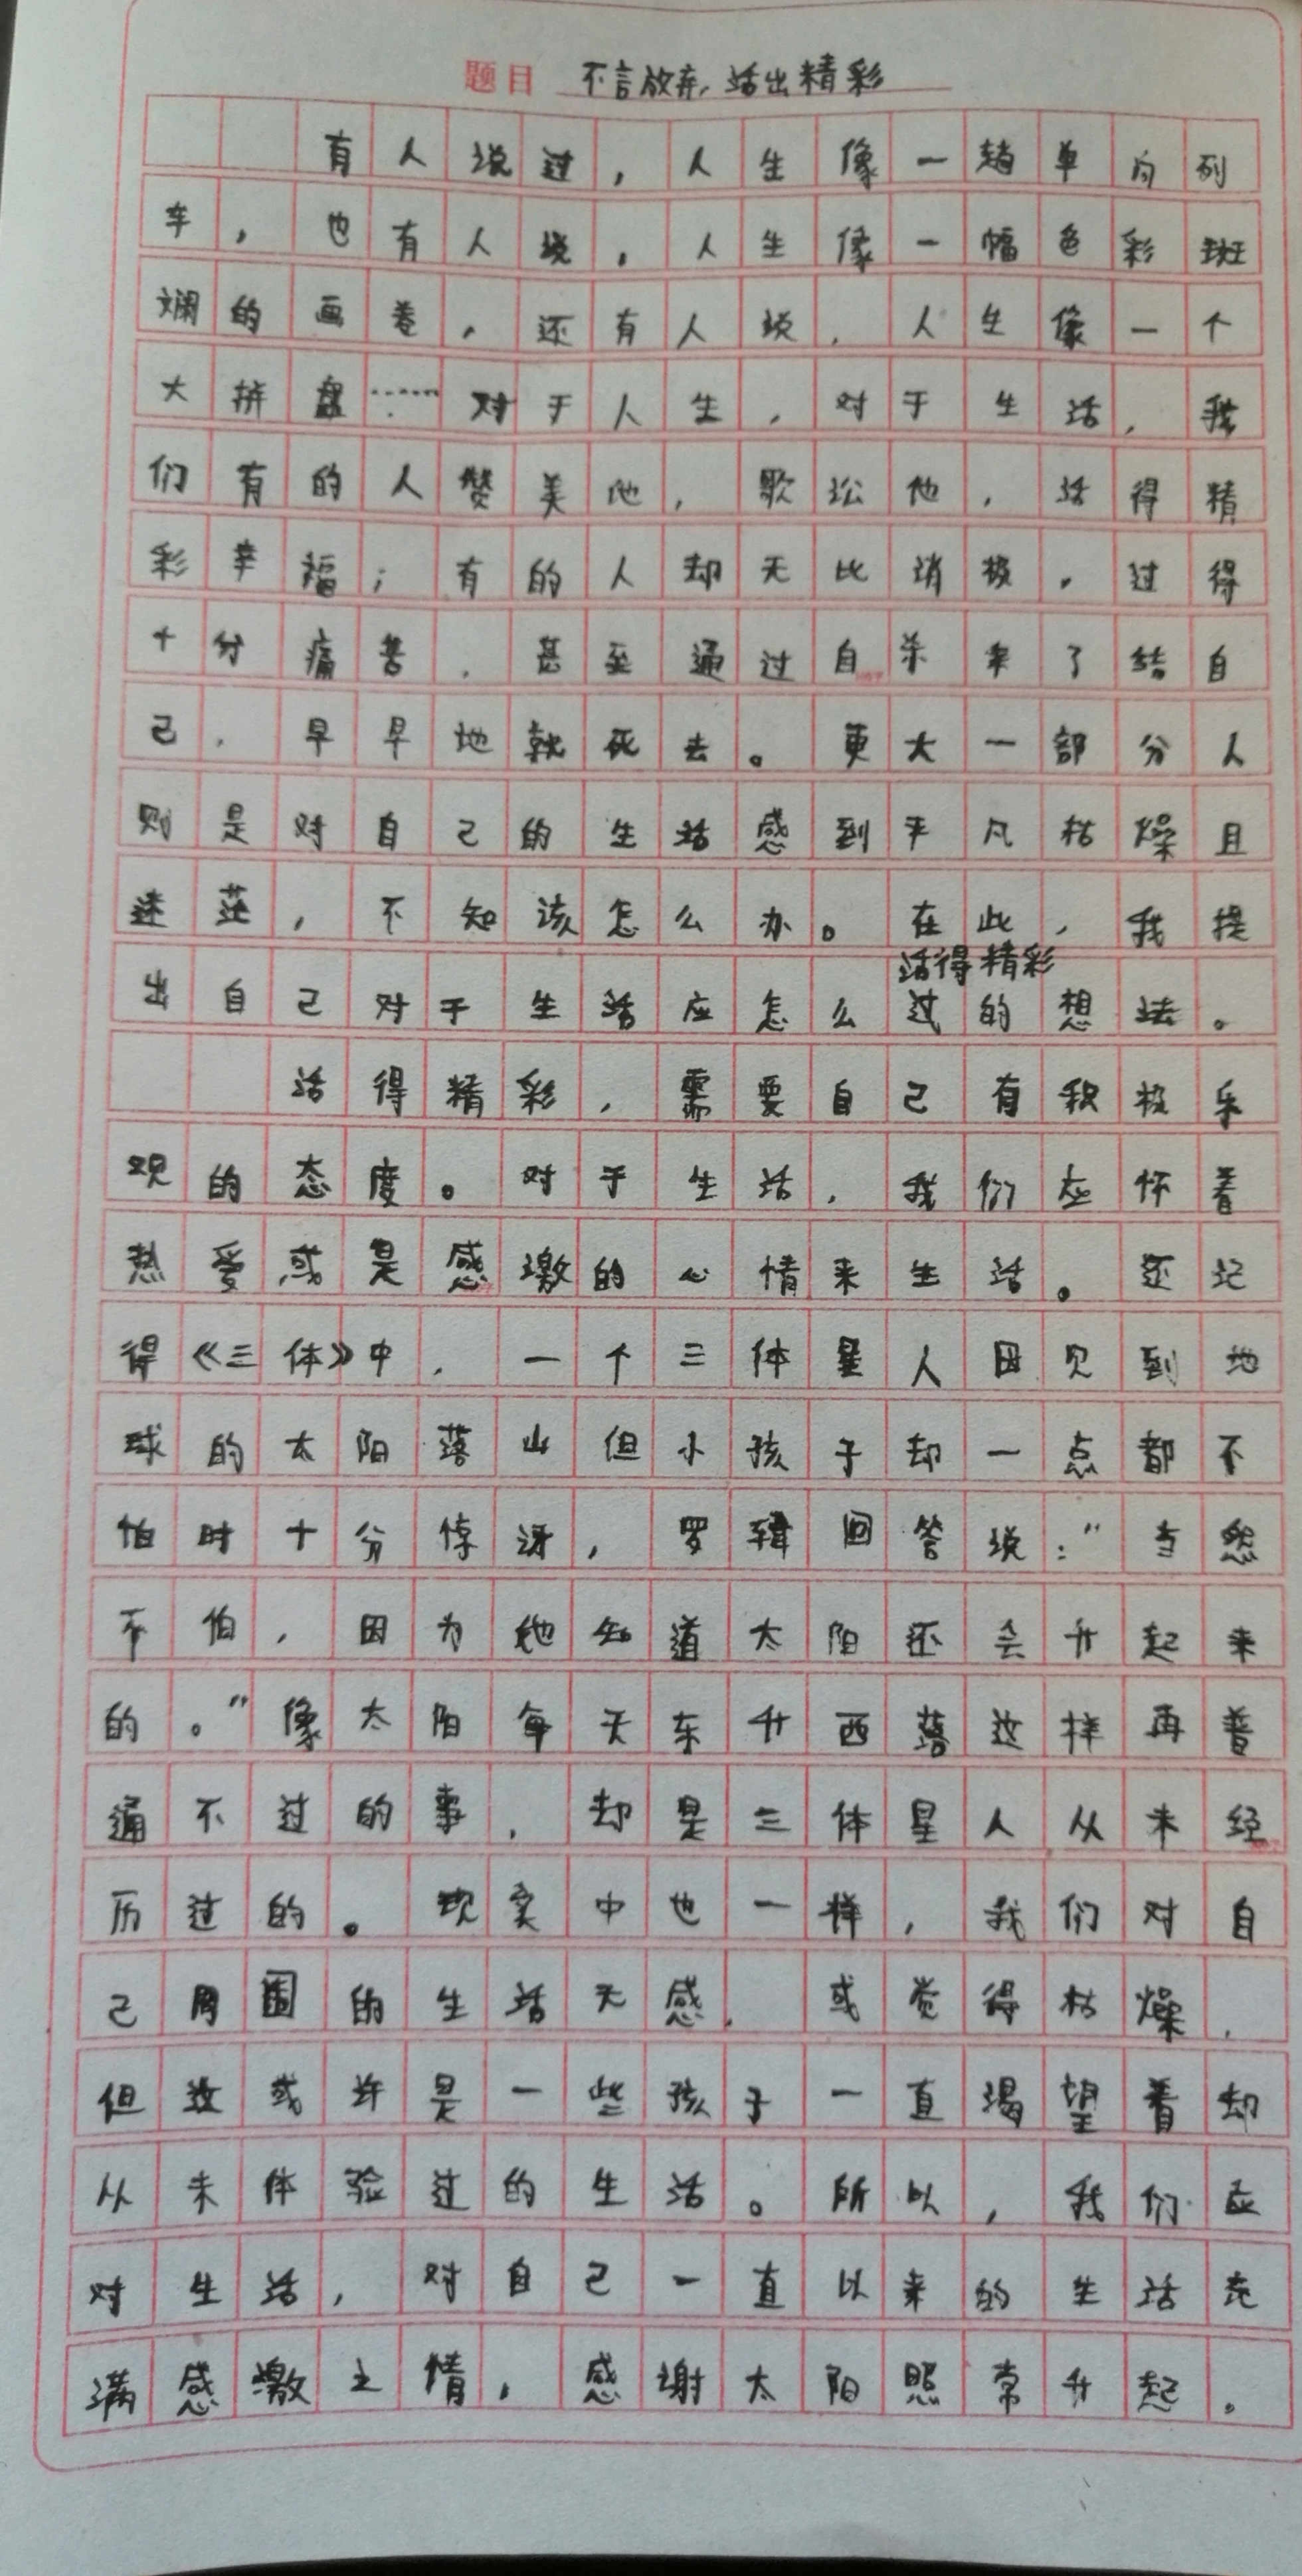 题目 不言放弃,活出精彩
有人说过,人生像一趟单向列
车,也有人说,人生像一幅色彩斑
斓的画卷,还有人说,人生像一个
大拼盘……对于人生,对于生活,我
们有的人赞美他,歌讼他,活得精
彩幸福;有的人却无比消极,过得
十分痛苦,甚至通过自杀来了结自
己,早早地就死去。更大一部分人
则是对自己的生活感到平凡枯燥且
迷茫,不知该怎么办。在此,我提
活得精彩
出自己对于生活应怎么过的想法。
活得精彩,需要自己有积极乐
观的态度。对于生活,我们应怀着
热爱或是感激的心情来生活。还记
得《三体》中,一个三体星人因见到地
球的太阳落山但小孩子却一点都不
怕时十分惊讶,罗辑回答说:"当然
不怕,因为她知道太阳还会升起来
的。"像太阳每天东升西落这样再普
通不过的事,却是三体星人从未经
历过的。现实中也一样,我们对自
己周围的生活无感,或觉得枯燥,
但这或许是一些孩子一直渴望着却
从未体验过的生活。所以,我们应
对生活,对自己一直以来的生活充
满感激之情,感谢太阳照常升起。